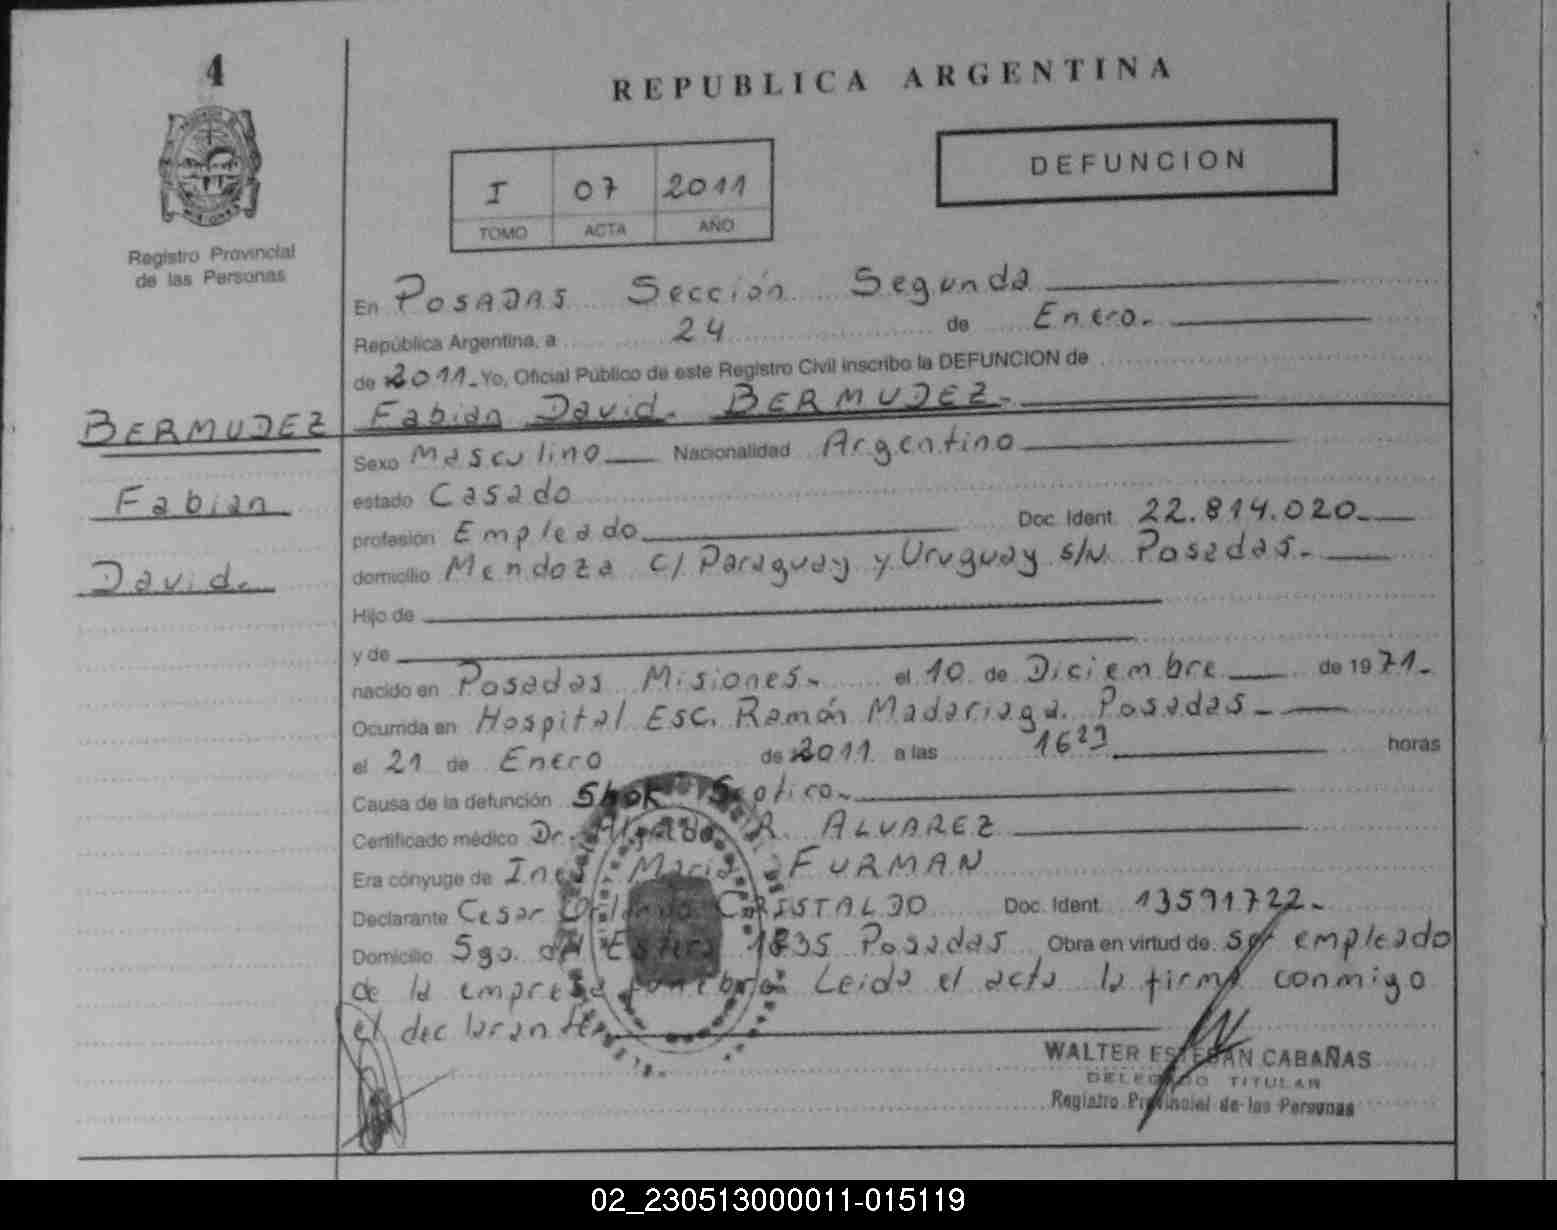 4
REPUBLICA ARGENTINA
DEFUNCION
I 07 2011
TOMO ACTA AÑO
Registro Provincial
de las Personas
En POSADAS Sección Segunda
República Argentina, a 24 de Enero.
de 2011. Yo, Oficial Público de este Registro Civil inscribo la DEFUNCION de
BERMUDEZ Fabian David. BERMUDEZ.
Sexo Masculino Nacionalidad Argentino
Fabian
estado Casado
profesión Empleado Doc. Ident. 22.814.020.
David.
domicilio Mendoza c/ Paraguay y Uruguay s/N. Posadas.
Hijo de
y de
nacido en Posadas Misiones. el 10 de Diciembre de 1971.
Ocurrida en Hospital Esc. Ramón Madariaga. Posadas.
el 21 de Enero de 2011 a las horas
Causa de la defunción Shok
Certificado médico Dr. R. ALVAREZ
Era cónyuge de Ines Maria FURMAN
Declarante Cesar CRISTALDO Doc. Ident. 13591722.
Domicilio Sgo. del Estero 1835 Posadas Obra en virtud de ser empleado
de la empresa funebre. Leida el acta la firma conmigo
el declarante.
WALTER ESTEBAN CABAÑAS
DELEGADO TITULAR
Registro Provincial de las Personas
02_230513000011-015119